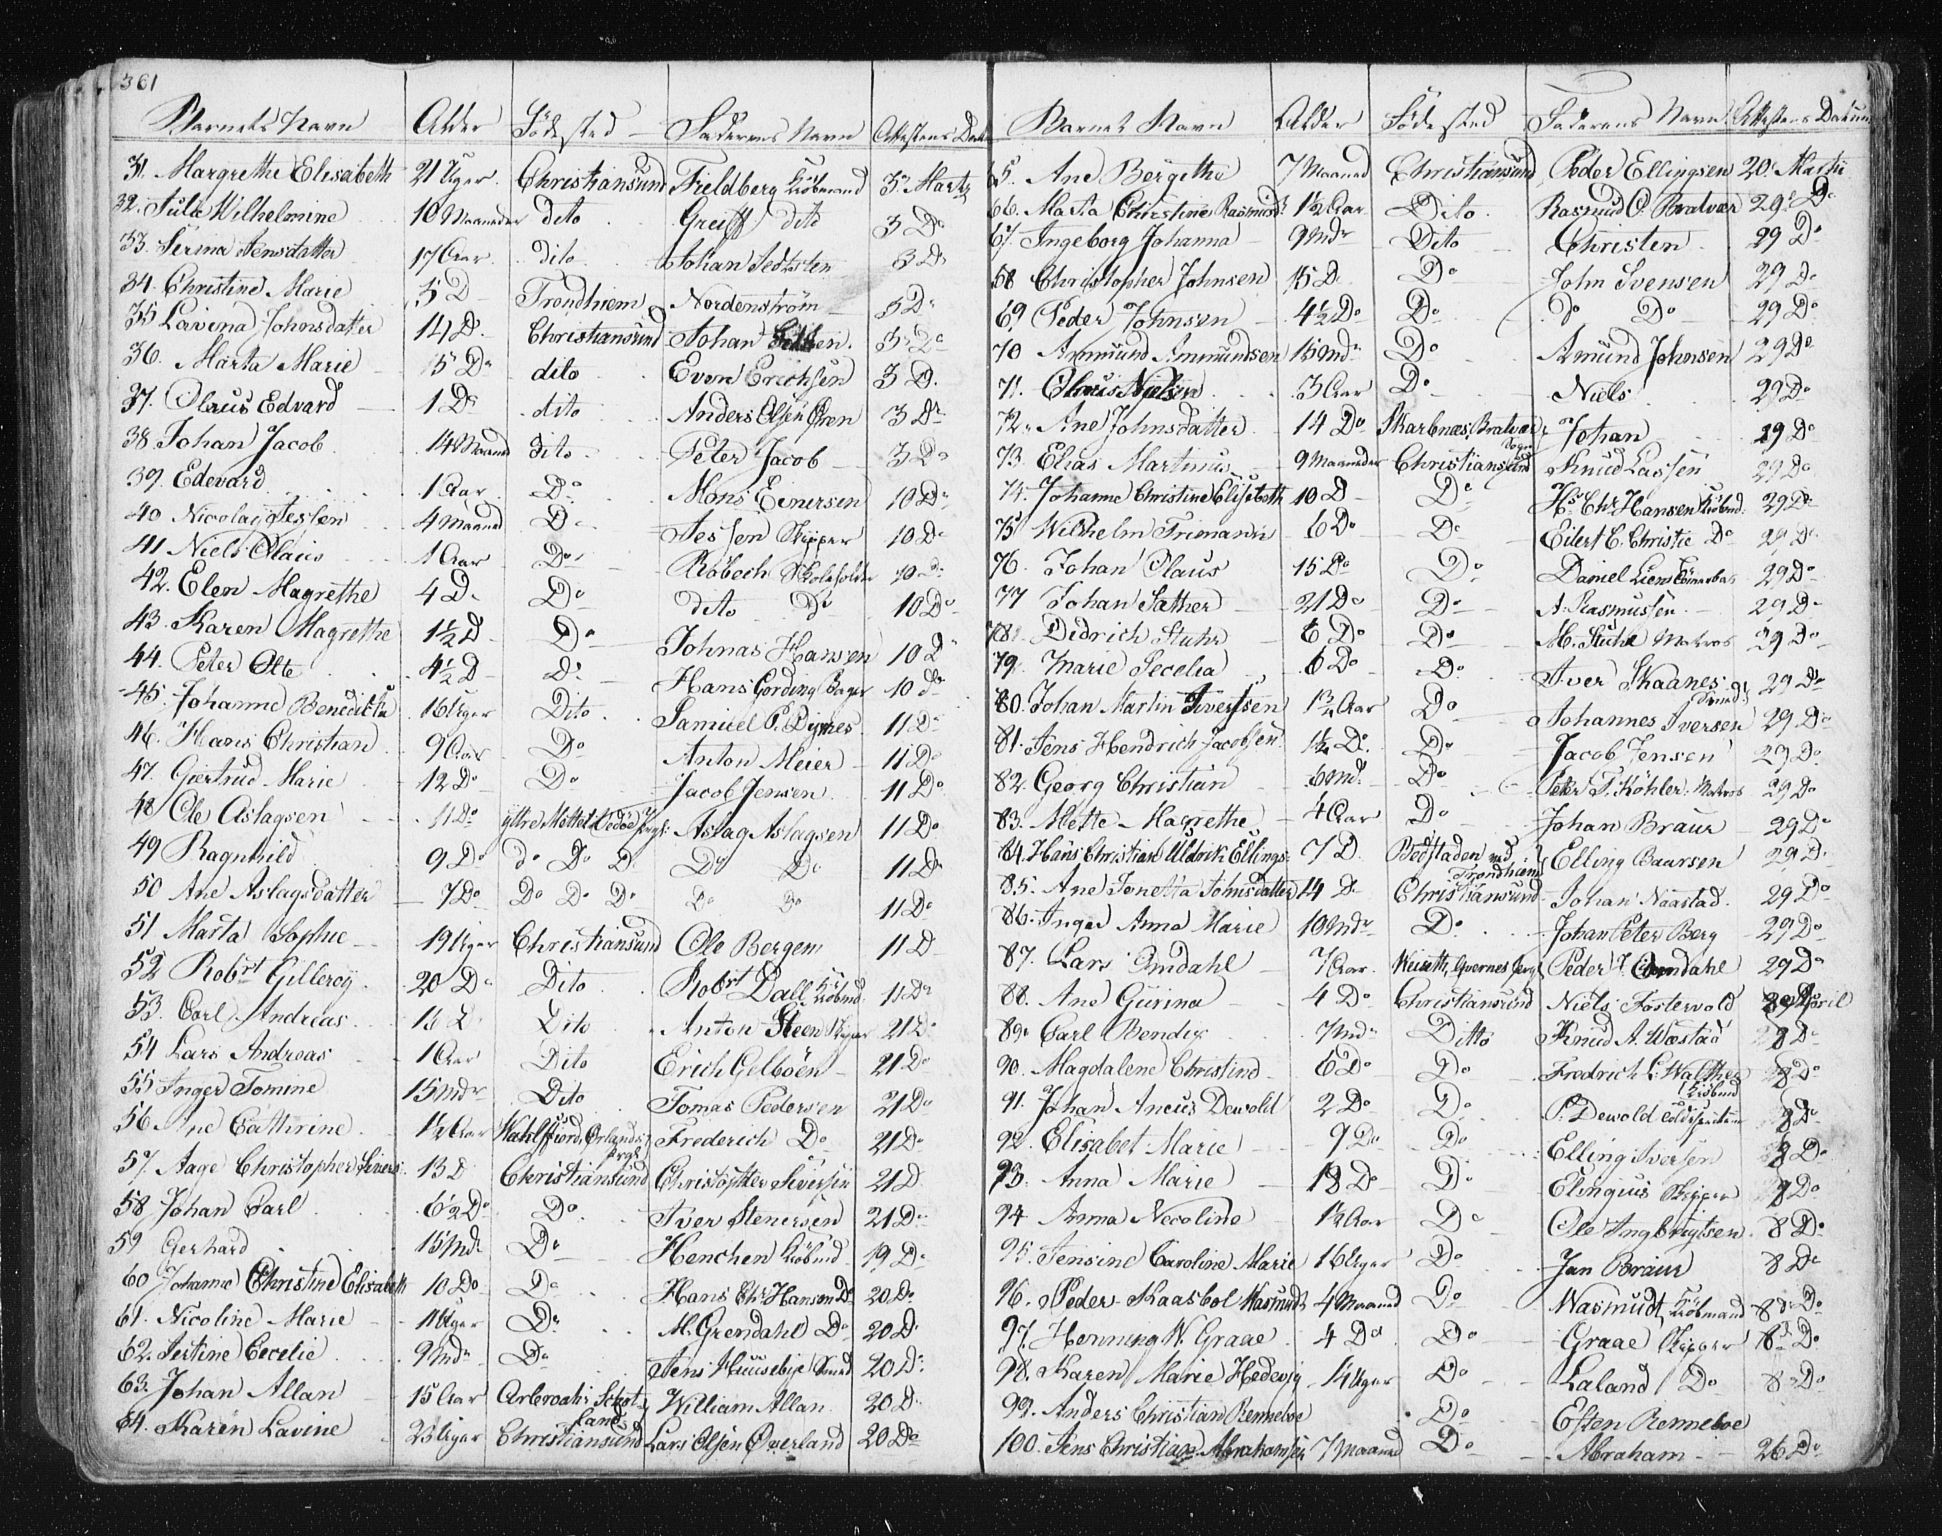 361
Barnets Navn Alder Födested Faderens Navn Attestens Dat
31. Margrethe Elisabeth 21 Uger. Christiansund Fieldberg Kiöbmand 3. Martz
32. Julie Wilhelmine 10 Maaneder dito Greiff dito 3 Do
33. Serina Jensdatter 17 Aar dito Johan Sedtsten 3 Do
34. Christine Marie 5 D Trondhiem Nordenström 3 Do
35 Lavina Johnsdatter 14 D. Christiansund Johan 3 Do
36. Marta Marie 5 Do dito Even Erichsen 3 D.
37. Olaus Edvard 1 Do dito Anders Olsen Ören 3 Do
38. Johan Jacob 14 Maaned dito Peter Jacob 3 Do
39. Edevard 1 Aar Do Mons Einersen 10 Do
40 Nicolay Jessen 4 Maaned Do Jessen Skipper 10 Do
41 Niels Olaus 1 Aar Do Röbech Skoleholder 10 Do
42. Elen Magrethe 4 D. Do dito do 10 Do
43. Karen Magrethe 1½ D Do Johnas Hansen 10 D
44. Peter Otte 4½ D Do Hans Gording Bager 10 do
45. Johanne Benedicta 16 Uger Dito Samuel P. Dyres 11 Do
46. Hans Christian 9 Aar Do Anton Meier 11 Do
47. Giertrud Marie 12 Do Do Jacob Jensen 11 Do
48 Ole Aslagsen 11 Do yttre Mettet Vedöe Prgl: Aslag Aslagsen 11 Do
49 Ragnhild 9 Do do Do D Do Do 11 Do
50 Ane Aslagsdatter 7 Do Do Do Do Do Do 11 Do
51 Marta Sophie 19 Uger Christiansund Ole Bergem 11 D
52 Robrt Gilleroy. 20 Do Dito Robrt Dall Kiöbmd. 11 Do
53. Carl Andreas 13 D Dito Anton Steen Skipper 21 Do
54 Lars Andreas 1 Aar Dito Erich Gelböen 21 Do
55 Inger Tomine 15 Mdr Dito Tomas Pedersen 21 Do
56 Ane Cathrine 1½ Aar Wahlffiord, Örlands Prgl Frederich Do 21 Do
57. Aage Christopher Sivers: 13 D Christiansund Christopher Siversen 21 D
58 Johan Carl 6½ Do Do Iver Stenersen 21 Do
59 Gerhard 15 Mdr Do Henchen Kiöbmd 19 Do
60 Johanne Christine Elisabeth 10 Do Do Hans Chr Hansen Do 20 Do
61. Nicoline Marie 11 Uger Do M. Grendahl Do 20 D
62. Jertine Cecelie 9 Mdr Do Jens Huusebye Smed 20 Do
63. Johan Allan 15 Aar Arbroath: Schotland William Allan 20 D
64. Karen Lavine 23 Uger Christiansund Lars Olsen Overland 20 Do
Barnets Navn Alder Födested Faderens Navn Attestens Datum
65. Ane Bergithe 7 Maaned Christiansund Peder Ellingsen 20. Martii
66. Maria Christine Rasmusd: 1½ Aar Dito Rasmus O. Bratvær 29 Do
67. Ingeborg Johanna 9 Mdr Dito Christen 29 Do
68 Christopher Johnsen 15 D Do John Svensen 29 Do
69 Peder Johnsen 4½ Do Do Do Do 29 Do
70 Ammund Ammundsen 15 Mdr Do Amund Johnsen 29 Do
71. Claus Nielsen 3 Aar Do Niels 29 Do
72. Ane Johnsdatter 14 Do Skarbnæs, Bratvær Sogn Johan 29 Do
73. Elias Martinus 9 Maaneder Christiansund Knud Lassen 29 Do
74. Johanne Christine Elisabeth 10 D Do Hs Chr Hansen Kiöbmd. 29 Do
75 Wilhelm Frimann 6 Do Do Eilert E. Christie Do 29 Do
76. Johan Olaus 15 Do Do Daniel Liens 29 Do
77 Johan Sather 21 Do Do A. Rasmussen 29 Do
78. Didrich Stuhr 6 Do Do M. Stuhr Matros 29 Do
79. Marie Secelia 6 Do Do Iver Skaanes 29 Do
80. Johan Martin Iversen 1¾ Aar Do Johannes Iversen 29 Do
81. Jens Hendrich Jacobsen 1¼ Do. Do Jacob Jensen 29 Do
82. Georg Christian 6 Md. Do Peter P. Köhler. Matros 29 Do
83. Mette Magrethe 4 Aar Do Johan Braur 29 Do
84. Hans Christian Uldrik Ellings: 7 D. Bedstaden ved Trondhiem Elling Baarsen 29 D
85. Ane Jonetta Johnsdatter 14 D Christiansund Johan Naastad. 29 Do
86. Inger Anna Marie 10 Mdr Do Johan Peter Berg 29 Do
87. Lars Omdahl 7 Aar. Weiseth, Qvernes Prgl Peder Omdahl 29 Do
88. Ane Gurina 4 Do Christiansund Niels Fostervold April
89. Carl Bendix 7 Mdr Ditto Knud A. Wæstad 8 Do
90. Magdalene Christine 6 Do Do Fredrich L. Walther Kiöbmd 8 Do
91. Johan Ancus Dewold 2 Do Do P. Dewold 8 Do
92. Elisabet Marie 9 Do Do Elling Iversen 8 Do
93. Anna Marie 18 Do Do Elinquis Skipper 8 Do
94 Anna Necoline 1½ Aar Do Ole Ingbrigtsen 8 Do
95. Jensine Caroline Marie 16 Uger Do Jan Braur 8 Do
96. Peder Kaasbol Wasmudt 4 Maaned Do Wasmudt, Kiöbmand 8 Do
97. Henning W. Graae 4 Do Do Graae Skipper 8 Do
98. Karen Marie Hedevig 14 Uger Do Laland Do 8 Do
99. Anders Christian Renneboe Do Esten Renneboe
100. Jens Christian Abrahamsen 7 Maaned Do Abraham 26 Do